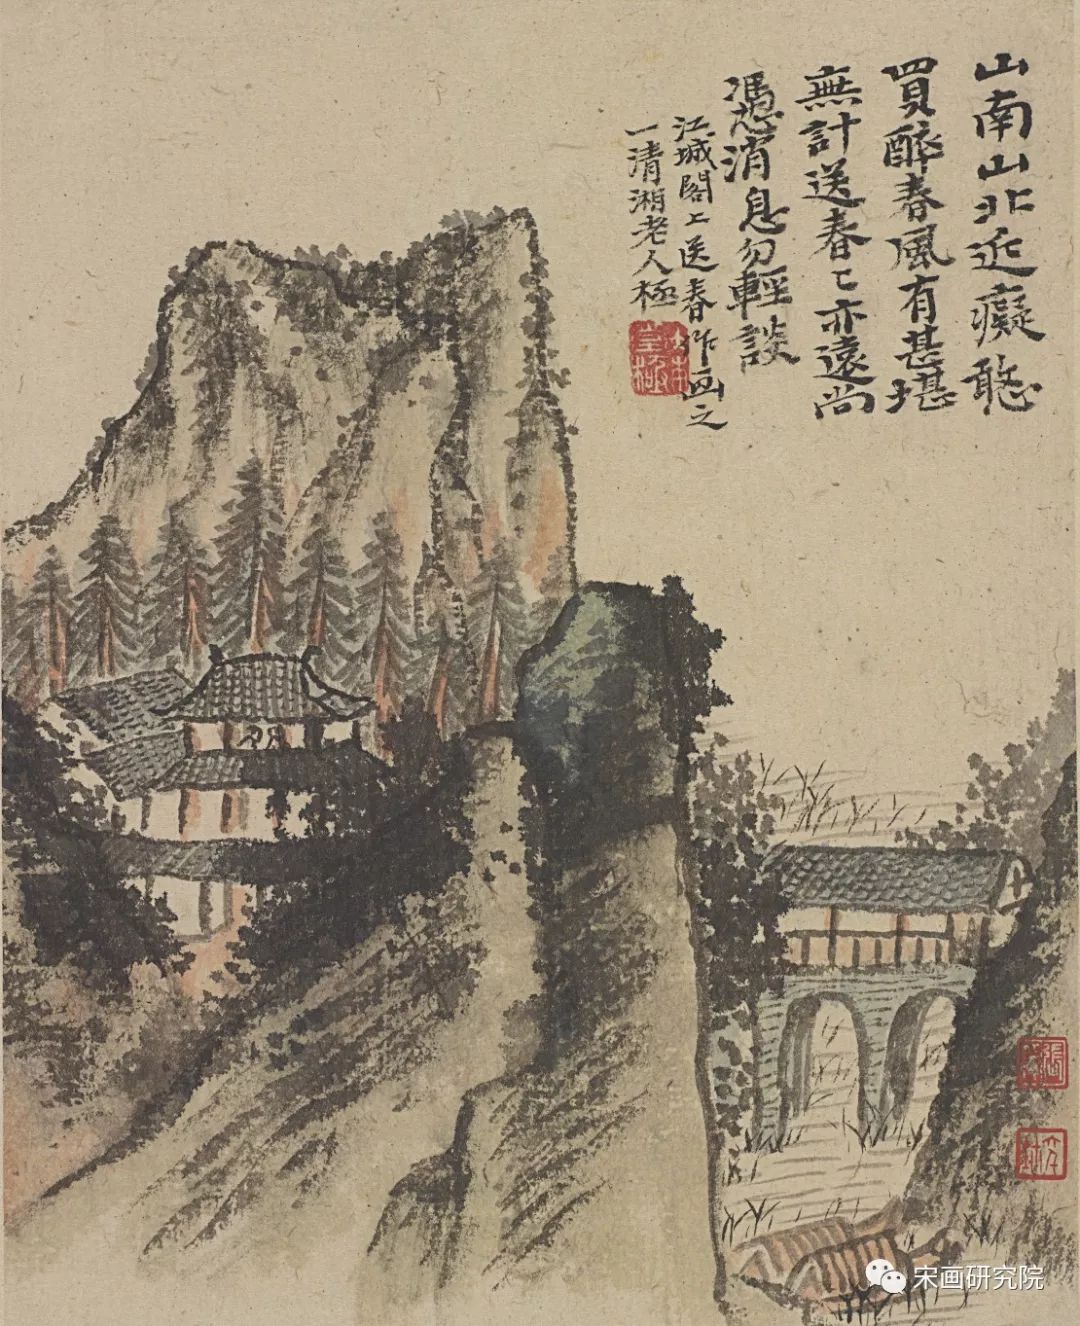 山南山北近癡憨
買醉春風有甚堪
無計送春〻亦遠尚
憑消息勿輕談
江城閣上送春作画之
一清湘老人極
宋画研究院